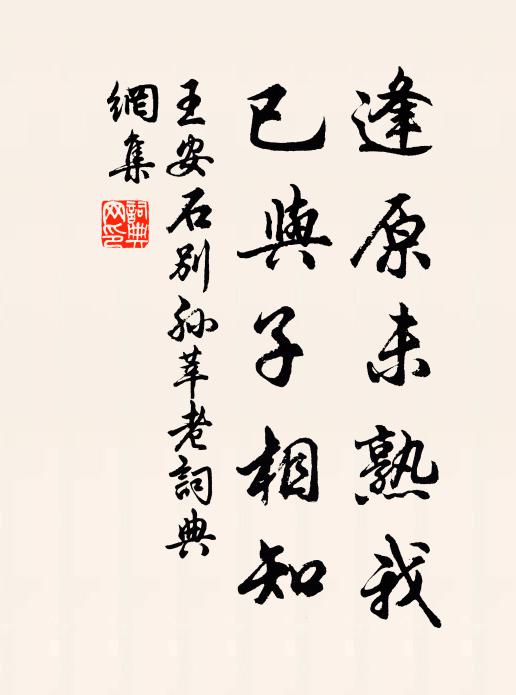 逢原未熟我
已與子相知
王安石別孫莘老詞典
網集
詞典網印